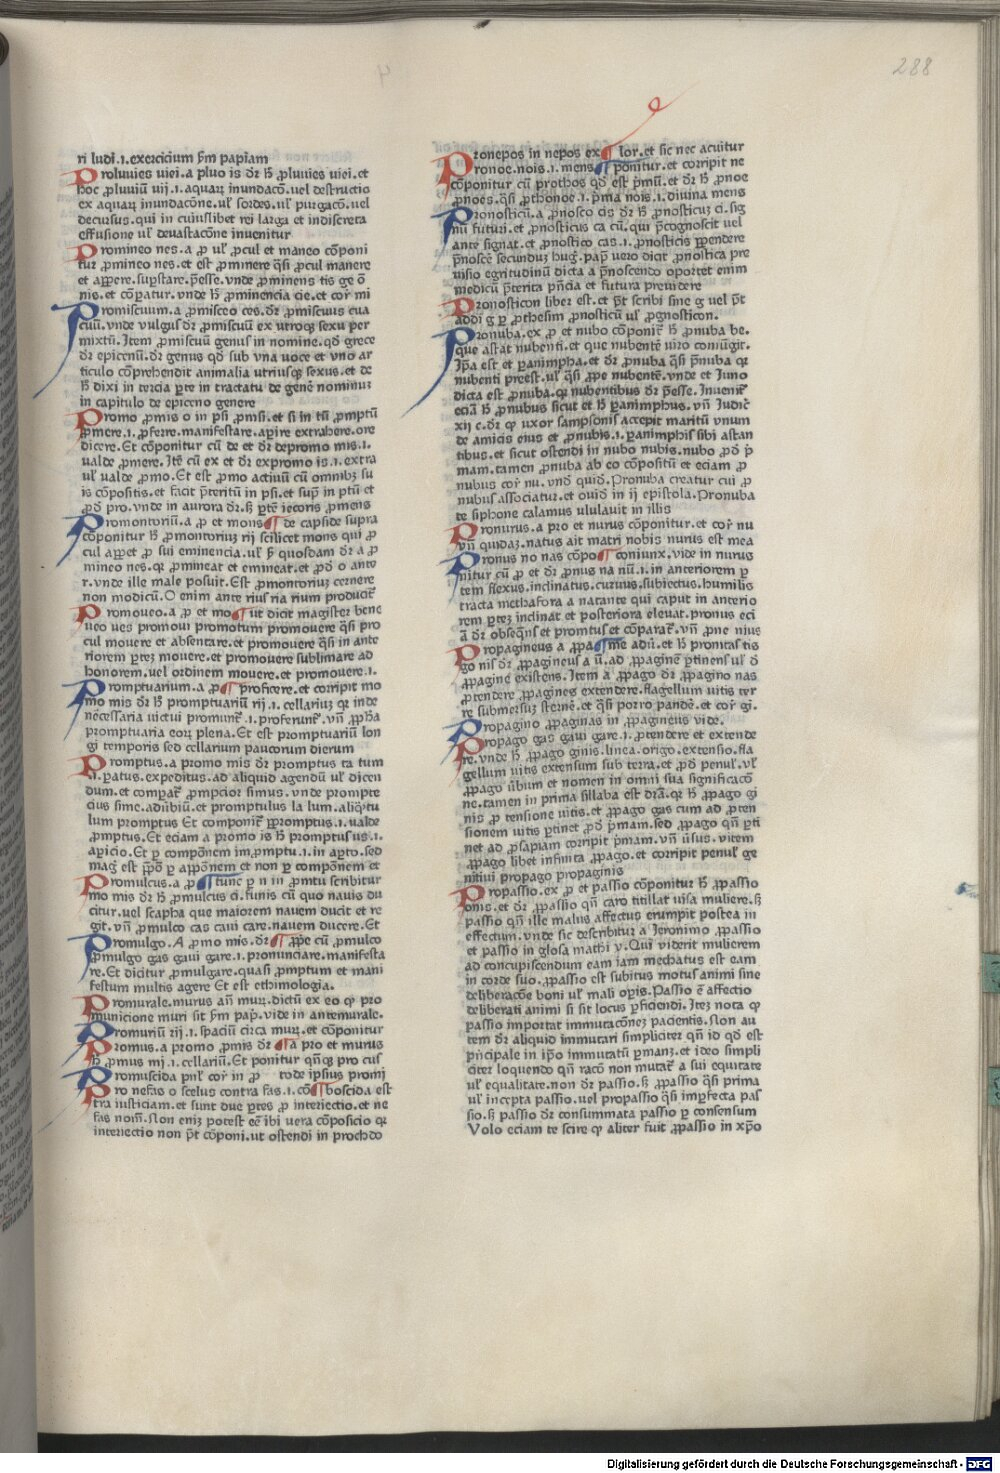 288
ri ludi.i.exercicium ẜm papiam
Proluuies uiei.a pluo is dr̄ h̄ ꝓluuies uiei.et
hoc ꝓluuiū uij.i.aquaꝝ inundacō.uel destructio
ex aquaꝝ inundacōne.ul̛ sordes.ul̛ purgacō.uel
decursus.qui in cuiuslibet rei larga et indiscreta
effusione ul̛ deuastacōne inuenitur
Promineo nes.a ꝓ ul̛ ꝓcul et maneo cōponi
tur ꝓmineo nes.et est ꝓminere q̄si ꝓcul manere
et apꝑere.suꝑstare.p̄esse.vnde ꝓminens tis ge ō
nis.et cōꝑatur.vnde h̄ ꝓminencia cie.et cor̄ mi
Promiscuum.a ꝓmisceo ces.dr̄ ꝓmiscuus cua
cuū.vnde vulgus dr̄ ꝓmiscuū ex utroqꝫ sexu per
mixtū.Item ꝓmiscuū genus in nomine.qd̄ grece
dr̄ epicenū.dr̄ genus qd̄ sub vna uoce et vno ar
ticulo cōprehendit animalia utriusqꝫ sexus.et de
h̄ dixi in tercia ꝑte in tractatu de genē nominuꝫ
in capitulo de epiceno genere
Promo ꝓmis o in psi ꝓmsi.et si in tū ꝓmptū
ꝓmere.i.ꝓferre.manifestare.aꝑire extrahere.ore
dicere.Et cōponitur cū de et dr̄ depromo mis.i.
ualde ꝓmere.Itē cū ex et dr̄ expromo is.i.extra
ul̛ ualde ꝓmo.Et est ꝓmo actiuū cū omnibꝫ su
is cōpositis.et facit p̄teritū in psi.et sup̄ in ptū et
ꝓd̄ pro.vnde in aurora dr̄.ẜ ꝑtē iecoris ꝓmens
Promontoriū.a ꝓ et mons ¶ de capside supra
cōponitur h̄ ꝓmontoriuꝫ rij scilicet mons qui ꝓ
cul apꝑet ꝓ sui eminencia.ul̛ ẜ quosdam dr̄ a ꝓ
mineo nes.qꝛ ꝓmineat et emineat.et ꝓd̄ o ante
r.vnde ille male posuit.Est ꝓmontoriuꝫ cernere
non modicū.O enim ante rius ria rium producit̄
Promoueo.a ꝓ et mo ¶ ut dicit magister bene
ueo ues promoui promotum promouere q̄si pro
cul mouere et absentare.et promouere q̄si in ante
riorem ꝑteꝫ mouere.et promouere sublimare ad
honorem.uel ordinem mouere.et promouere.i.
Promptuarium.a ꝓ ¶ proficere.et corripit mo
mo mis dr̄ h̄ promptuariū rij.i.cellariuꝫ qꝛ inde
nēcessaria uictui promunt̄.i.proferunt̄.vn̄ ꝓꝑba
promptuaria eoꝝ plena.Et est promptuariū lon
gi temporis sed cellarium paucorum dierum
Promptus.a promo mis dr̄ promptus ta tum
.i.ꝑatus.expeditus.ad aliquid agendū ul̛ dicen
dum.et compat̄ ꝓmpcior simus.vnde prompte
cius sime.aduībiū.et promptulus la lum.aliq̄tu
lum promptus Et componit̄ ꝑpromptus.i.ualde
ꝓmptus.Et eciam a promo is h̄ promptus us.i.
aꝑicio.Et ꝑ compōnem im.ꝓmptu.i.in aꝑto.sed
mag̛ est ꝓpō ꝑ appōnem et non ꝑ compōnem et
Promulcus.a ꝓ ¶ tunc ꝑ n in ꝓmtu scribitur
mo mis dr̄ h̄ ꝓmulcus ci.funis cū quo nauis du
citur.uel scapha que maiorem nauem ducit et re
git.vn̄ ꝓmulco cas caui care.nauem ducere.Et
Promulgo.A ꝓmo mis.dr̄ ¶ ꝓpe cū ꝓmulco
ꝓmulgo gas gaui gare.i.pronunciare.manifesta
re.Et dicitur ꝓmulgare.quasi ꝓmptum et mani
festum multis agere Et est ethimologia.
Promurale.murus an̄ muꝝ.dictū ex eo ꝙ pro
municione muri sit ẜm pap̄.vide in antemurale.
Promuriū rij.i.spaciū circa muꝝ.et cōponitur
Promus.a promo ꝓmis dr̄ ¶ a pro et murus
h̄ ꝓmus mi.i.cellariū.Et ponitur qn̄qꝫ pro cus
Promuscida pul̛ cor̄ in ꝓ tode ipsius promi
Pro nefas o scelus contra fas.i.cō ¶ boscida est
tra iusticiam.et sunt due ꝑtes ꝓ interiectio.et ne
fas nom̄.Non eniꝫ potest eē ibi uera cōposicio qꝛ
interiectio non p̄t cōponi.ut ostendi in prochdo
Pronepos in nepos ex ¶ lor.et sic nec acuitur
Pronoe.nois.i.mens ¶ ponitur.et corripit ne
cōponitur cū prothos qd̄ est p̄mū.et dr̄ h̄ ꝓnoe
ꝓnoes.q̄si ꝓthonoe.i.p̄ma nois.i.diuina mens
Pronosticū.a ꝓnosco cis dr̄ h̄ ꝓnosticuꝫ ci.sig
nū futuri.et ꝓnosticus ca cū.qui p̄cognoscit uel
ante signat.et ꝓnostico cas.i.ꝓnosticis ꝑpendere
p̄noscē secunduꝫ hug̛.pap̄ uero dicit ꝓnostica pre
uisio egritudinū dicta a p̄noscendo oportet enim
medicū p̄terita p̄ncia et futura preuidere
Pronosticon liber est.et p̄t scribi sine g uel p̄t
addi g ꝑ ꝓthesim ꝓnosticū ul̛ ꝓgnosticon.
Pronuba.ex ꝓ et nubo cōponit̄ h̄ ꝓnuba be.
que astat nubenti.et que nubentē uiro coniūgit.
Ip̄a est et ꝑanimpha.et dr̄ ꝓnuba q̄si p̄nuba qꝛ
nubenti preest.ul̛ q̄si ꝓpe nubentē.vnde et Iuno
dicta est ꝓnuba.qꝛ nubentibus dr̄ p̄esse.Inuenit̄
eciā h̄ ꝓnubus sicut et h̄ ꝑanimphus.vn̄ Iudic̄
xij c.dr̄ ꝙ uxor sampsonis accepit maritū vnum
de amicis eius et ꝓnubis.i.ꝑanimphis sibi astan
tibus.et sicut ostendi in nubo nubis.nubo ꝓd̄ p̄
mam.tamen ꝓnuba ab eo cōpositū et eciam ꝓ
nubus cor̄ nu.vnd̄ quid̄.Pronuba creatur cui ꝓ
nubus associatur.et ouid̄ in ij epistola.Pronuba
te siphone calamus ululauit in illis
Pronurus.a pro et nurus cōponitur.et cor̄ nu
vn̄ quidaꝫ.natus ait matri nobis nurus est mea
Pronus no nas cōpo ¶ coniunx.vide in nurus
nitur cū ꝓ et dr̄ ꝓnus na nū.i.in anteriorem ꝑ
tem flexus.inclinatus.curuus.subiectus.humilis
tracta methafora a natante qui caput in anterio
rem ꝑteꝫ inclinat et posteriora eleuat.pronus eci
ā dr̄ obseq̄ns et promtus et cōparat̄.vn̄ ꝓne nius
Propagineus a ꝓpa ¶ me adū.et h̄ pronitas tis
go nis dr̄ ꝓpagineus a ū.ad ꝓpaginē ꝑtinens ul̛ d̄
ꝓpagine existens.Item a ꝓpago dr̄ ꝓpagino nas
ꝓtendere ꝓpagines extendere.flagellum uitis ter
re submersuꝫ sternē.et q̄si porro pandē.et cor̄ gi.
Propagino ꝓpaginas in ꝓpagineus vide.
Propago gas gaui gare.i.ꝓtendere et extende
re.vnde h̄ ꝓpago ginis.linea.origo.extensio.fla
gellum uitis extensum sub terra.et ꝓd̄ penul̛.ul̛
ꝓpago ūbum et nomen in omni sua significacō
ne.tamen in prima sillaba est dr̄a.qꝛ h̄ ꝓpago gi
nis ꝓ tensione uitis.et ꝓpago gas cum ad ꝓten
sionem uitis ꝑtinet ꝓd̄ p̄mam.sed ꝓpago qn̄ ꝑti
net ad ꝓsapiam corripit p̄mam.vn̄ ūsus.vitem
ꝓpago libet infinita ꝓpago.et corripit penul̛ ge
nitiui propago propaginis
Propassio.ex ꝓ et passio cōponitur h̄ ꝓpassio
onis.et dr̄ ꝓpassio qn̄ caro titillat uisa muliere.ẜ
passio qn̄ ille malus affectus erumpit postea in
effectum.vnde sic describitur a Ieronimo ꝓpassio
et passio in glosa mathi v.Qui viderit mulierem
ad concupiscendum eam iam mechatus est eam
in corde suo.ꝓpassio est subitus motus animi sine
deliberacōne boni ul̛ mali oꝑis.Passio ē affectio
deliberati animi si sit locus ꝑficiendi.Iteꝫ nota ꝙ
passio importat immutacōneꝫ pacientis.Non au
tem dr̄ aliquid immutari simpliciter qn̄ id qd̄ est
pn̄cipale in ip̄o immutatū ꝑmanꝫ.et ideo simpli
citer loquendo qn̄ racō non mutat̄ a sui equitate
ul̛ equalitate.non dr̄ passio.ẜ ꝓpassio q̄si prima
ul̛ incepta passio.uel propassio q̄si imꝑfecta pas
sio.ẜ passio dr̄ consummata passio ꝑ consensum
Volo eciam te scire ꝙ aliter fuit ꝓpassio in xp̄o
Digitalisierung gefördert durch die Deutsche Forschungsgemeinschaft - DFG